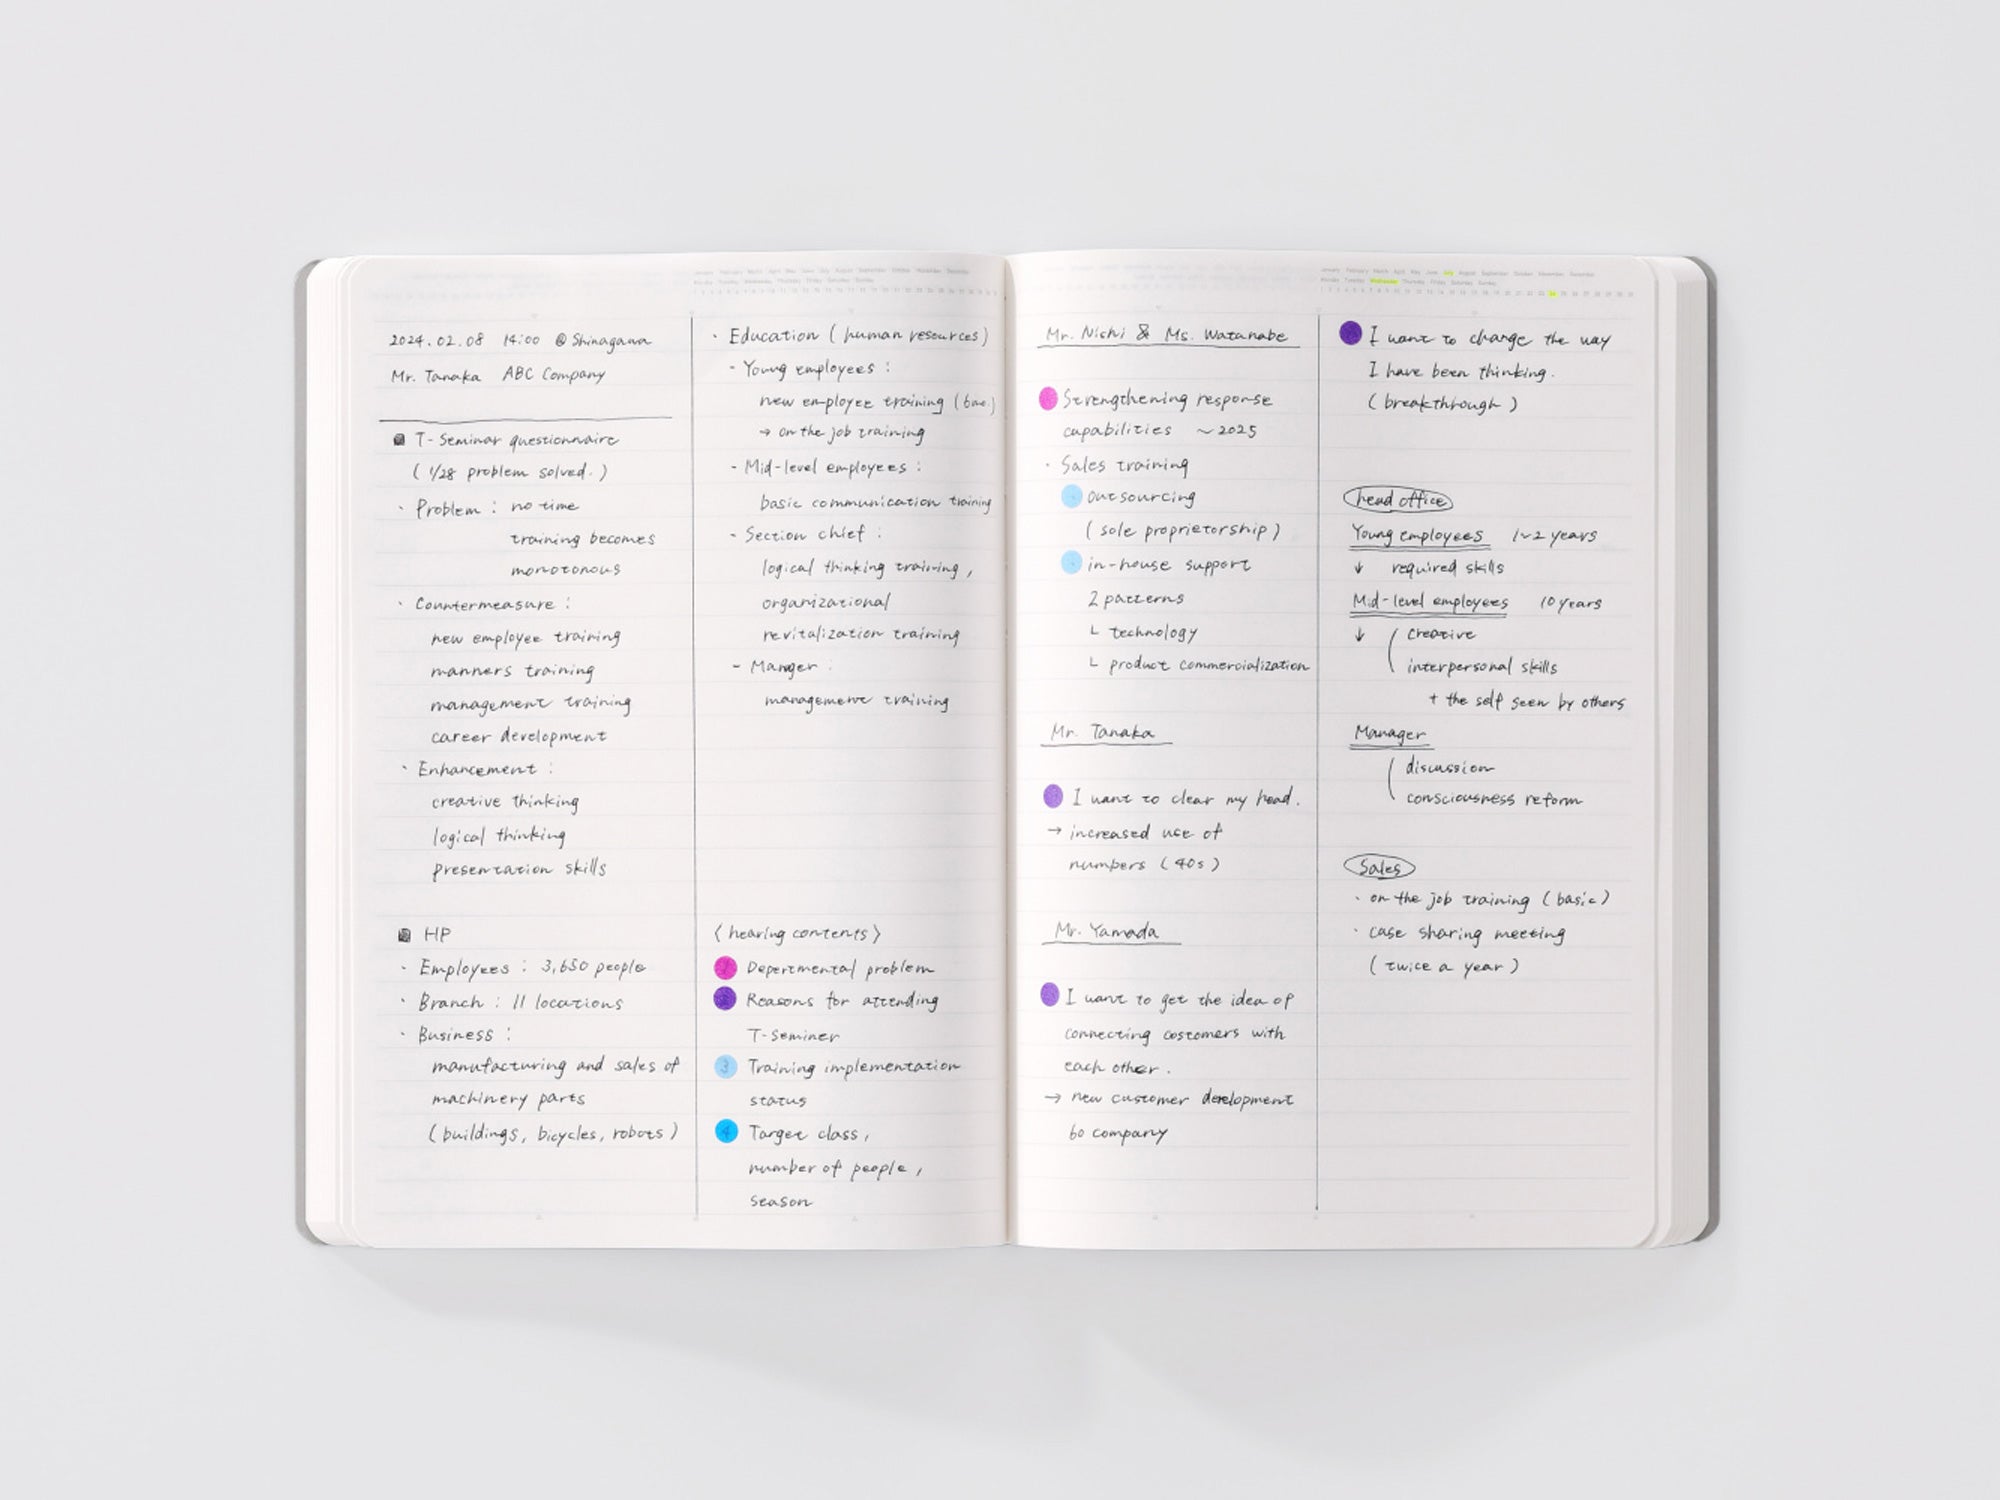 January February March April May June July August September October November December
Monday Tuesday Wednesday Thursday Friday Saturday Sunday
2024.02.08 14:00 @Shinagawa
Mr. Tanaka ABC Company
T-Seminar questionnaire
( 1/28 problem solved. )
· Problem : no time
training becomes
monotonous
· Countermeasure :
new employee training
manners training
management training
career development
· Enhancement :
creative thinking
logical thinking
presentation skills
HP
· Employees : 3,650 people
· Branch : 11 locations
· Business :
manufacturing and sales of
machinery parts
( buildings, bicycles, robots )
· Education ( human resources )
- Young employees :
new employee training
→ on the job training
- Mid-level employees :
basic communication training
- Section chief :
logical thinking training,
organizational
revitalization training
- Manger :
management training
< hearing contents >
Depertmental problem
Reasons for attending
T-Seminer
3 Training implementation
status
4 Target class,
number of people,
season
January February March April May June July August September October November December
Monday Tuesday Wednesday Thursday Friday Saturday Sunday
Mr. Nishi & Ms. Watanabe
Strengthening response
capabilities ~2025
· Sales training
outsourcing
( sole proprietorship )
in-house support
2 patterns
└ technology
└ product commercialization
Mr. Tanaka
I want to clear my head.
→ increased use of
numbers ( 40s )
Mr. Yamada
I want to get the idea of
connecting costomers with
each other.
→ new customer development
60 company
I want to change the way
I have been thinking.
( breakthrough )
head office
Young employees 1~2 years
↓ required skills
Mid-level employees 10 years
↓ ( creative
interpersonal skills
+ the self seen by others
Manager
( discussion
consciousness reform
Sales
· on the job training ( basic )
· case sharing meeting
( twice a year )